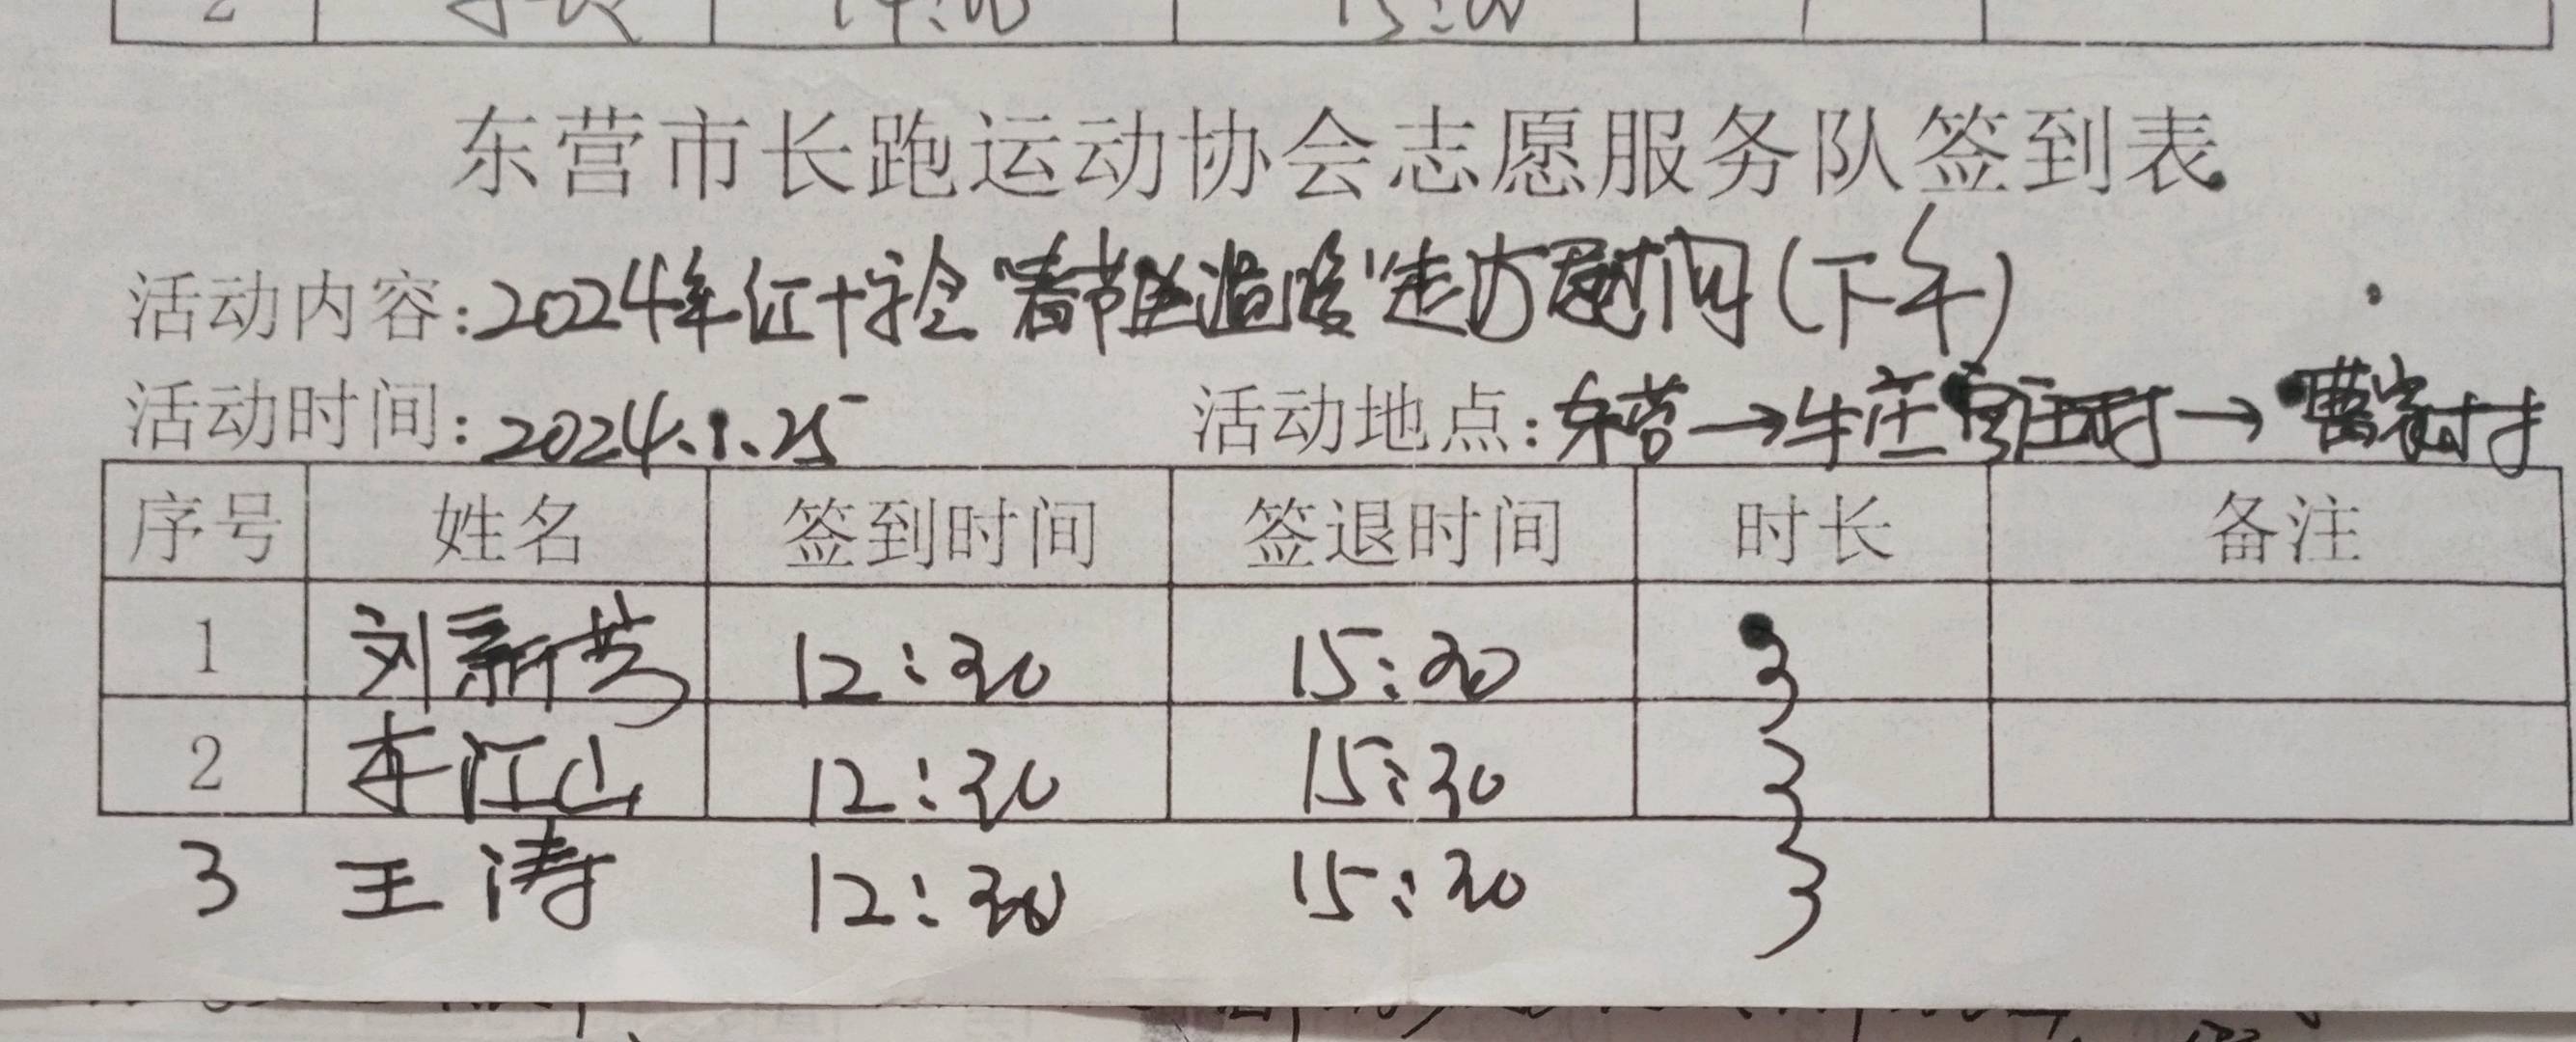 2 14:00 15:00 1
东营市长跑运动协会志愿服务队签到表
活动内容:2024年红十字会“春节送温暖”走访慰问(下午)
活动时间:2024.1.25 活动地点:东营→牛庄 村→曹家村
序号 姓名 签到时间 签退时间 时长 备注
1 刘新芳 12:30 15:30 3
2 李江山 12:30 15:30 3
3 王涛 12:30 15:30 3